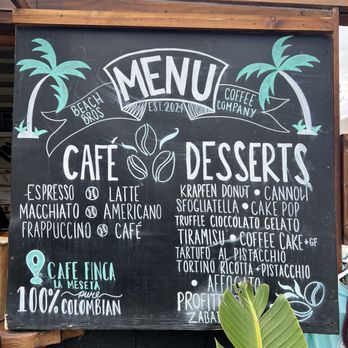 BEACH BROS
MENU
EST. 2021
COFFEE COMPANY
CAFÉ
ESPRESSO LATTE
MACCHIATO AMERICANO
FRAPPUCCINO CAFÉ
CAFE FINCA
LA MESETA pure
100% COLOMBIAN
DESSERTS
KRAPFEN DONUT • CANNOLI
SFOGLIATELLA • CAKE POP
TRUFFLE CIOCCOLATO GELATO
TIRAMISU • COFFEE CAKE •GF
TARTUFO AL PISTACCHIO
TORTINO RICOTTA • PISTACCHIO
• AFFOGATO